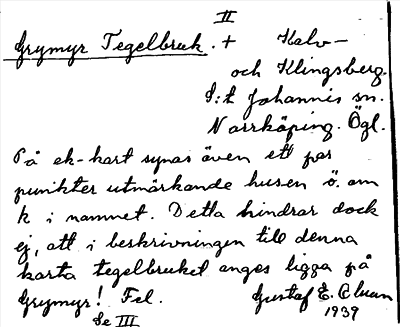 II
Grymyr Tegelbruk. + Halv-
och Klingsberg.
S:t Johannis sn.
Norrköping. Ögl.
På ek-kart synas även ett par
punkter utmärkande husen ö. om
k i namnet. Detta hindrar dock
ej, att i beskrivningen till denna
karta tegelbruket anges ligga på
Grymyr! Fel. Gustaf E. Cluun
Se III 1939